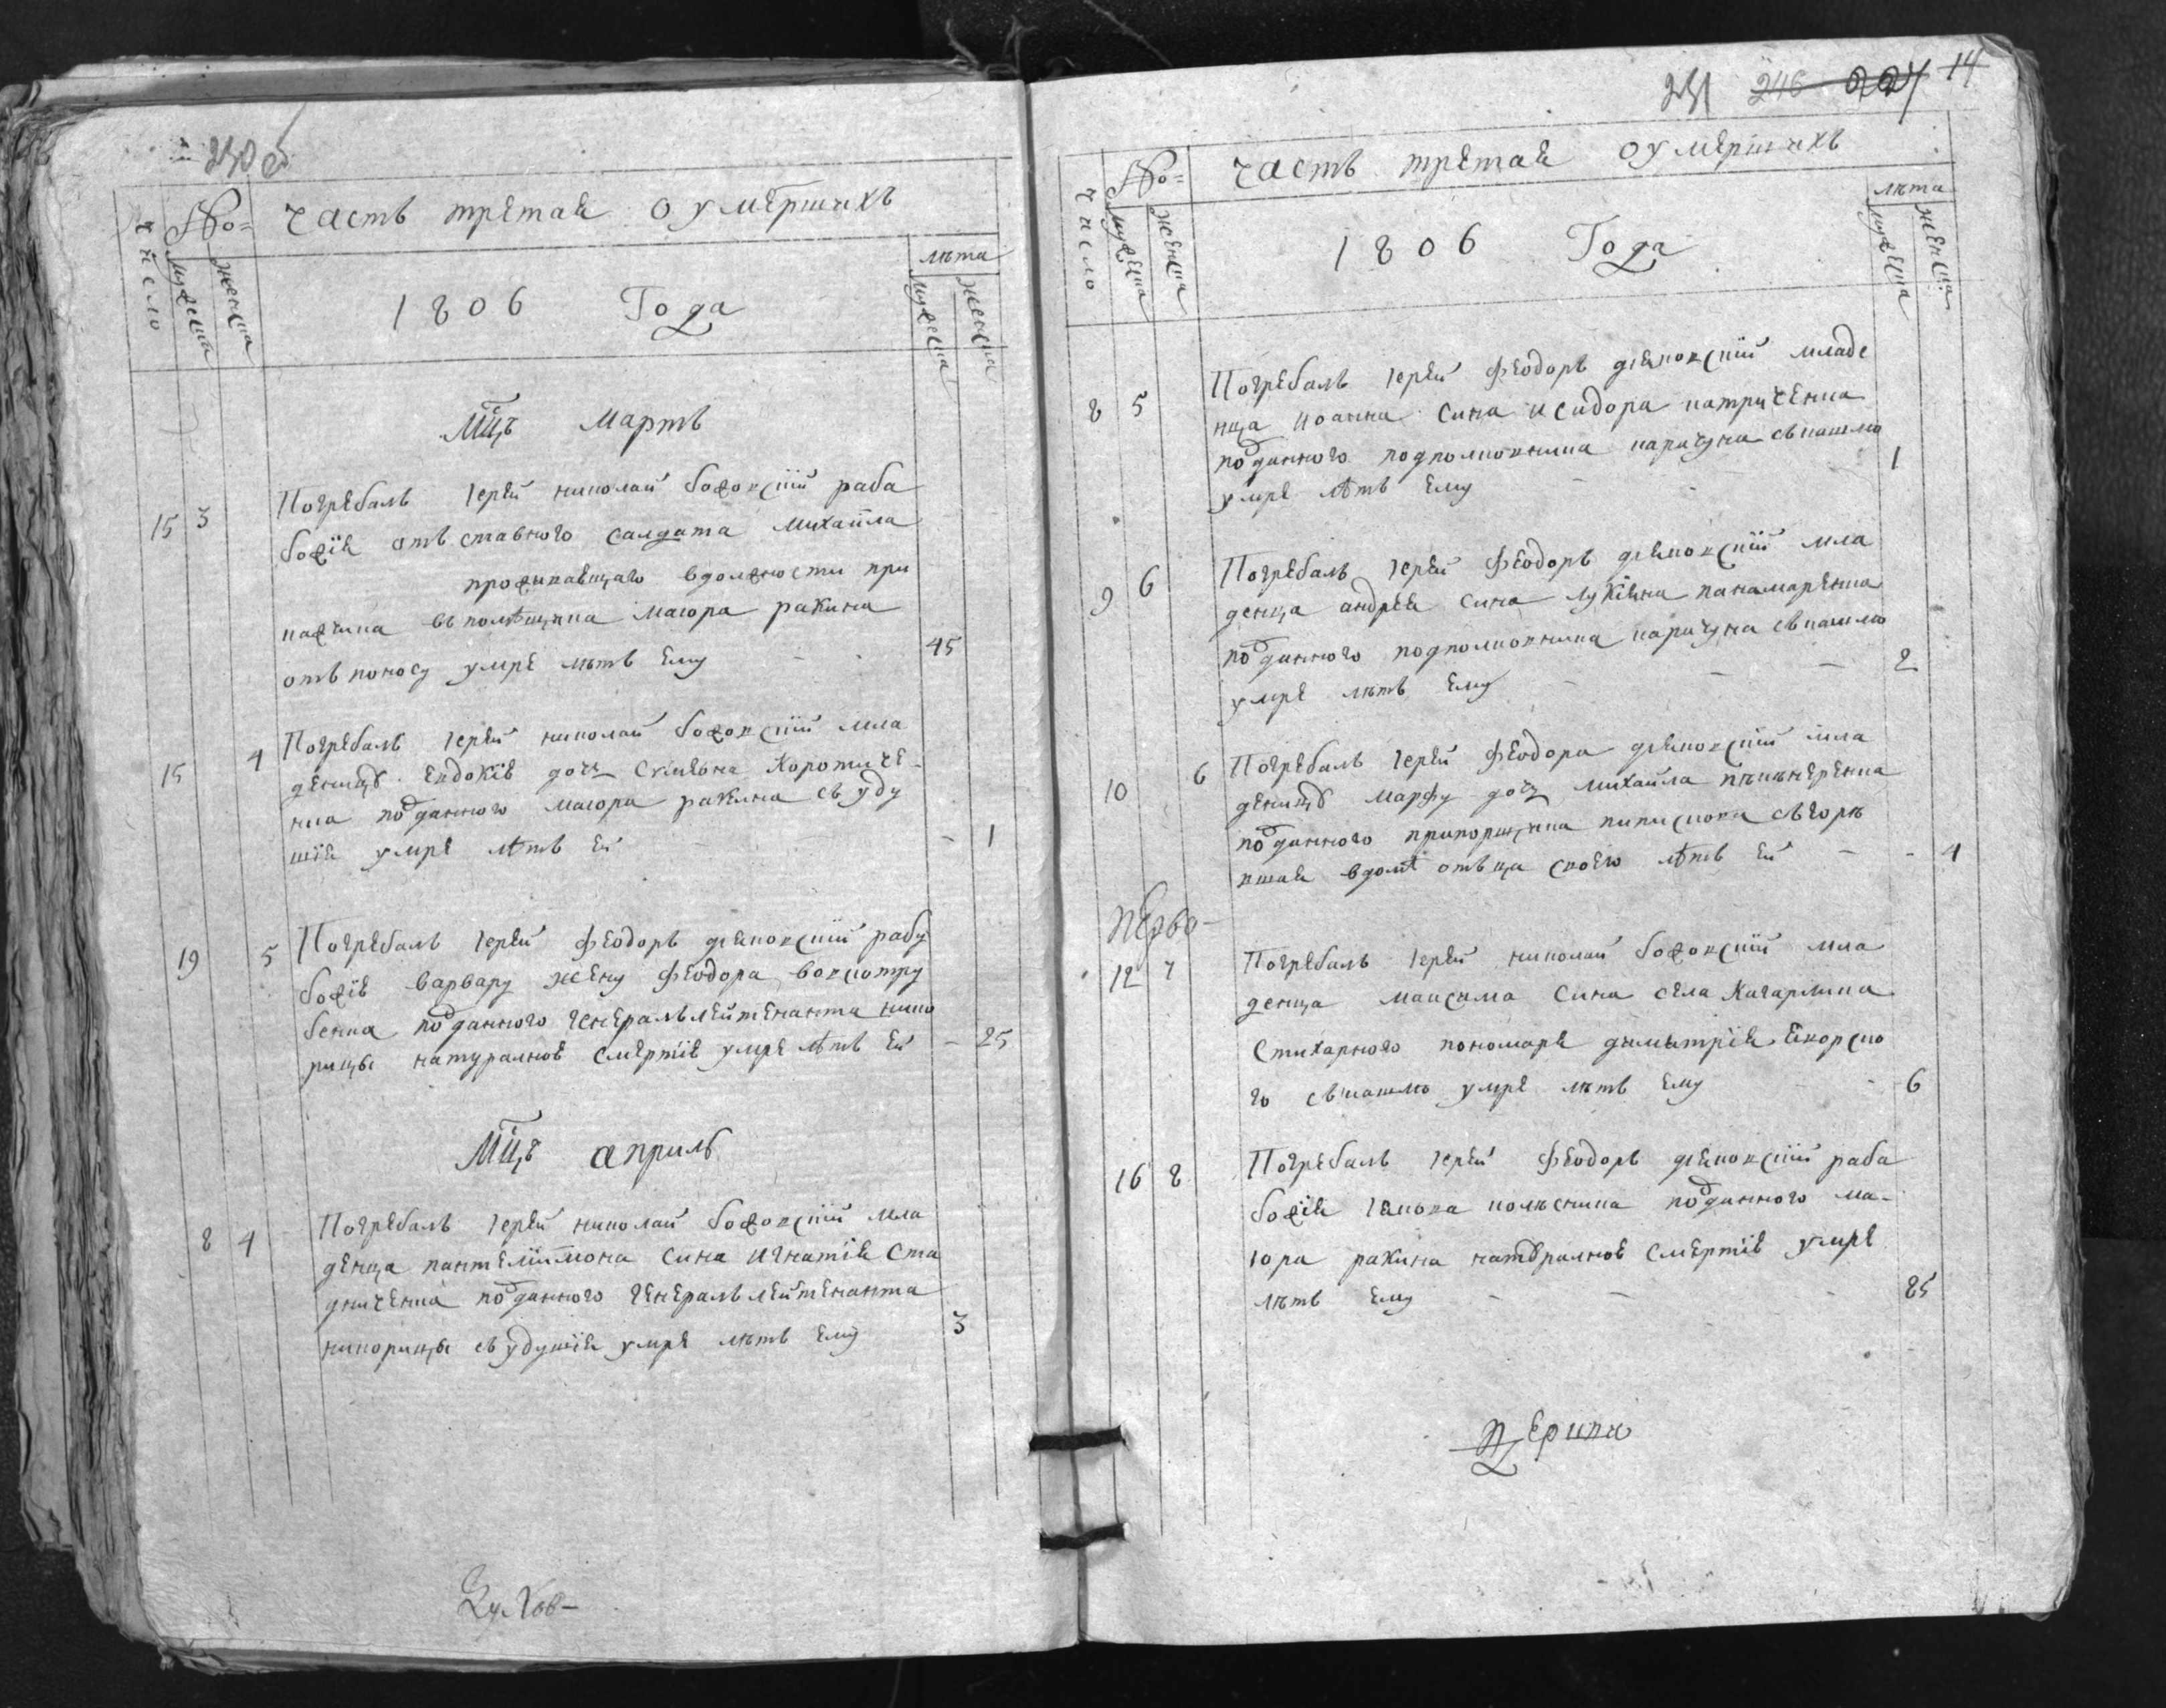 230 об
Число
№о=
мужеска
женска
часть третая о умершихъ
1806 Года
лѣта
мужеска
женска
Мц҃ъ мартъ
15 3 Погребалъ Іерей николай божовскій раба
божія отъставного салдата михаила
проживавшаго вдолжности при
въ помѣщика маіора ракина
отъ поносу умре лѣтъ Ему 45
15 4 Погребалъ Іерей николай божовскій мла
деницу Евдокію дочь Симеона Коротиче
нка подданного маіора ракина съ уду
шія умре лѣтъ Ей 1
19 5 Погребалъ Іерей Феодоръ діаковскій рабу
божію варвару жену Феодора
бенка подданного Генералълейтенанта кико
рицы натуралною смертію умре лѣтъ Ей 25
Мц҃ъ априль
8 4 Погребалъ Іерей николай божовскій мла
денца пантелиимона сина игнатія ста
дниченка подданного Генералълейтенанта
кикорицы съ удушія умре лѣтъ Ему 3
231 246 227 14
Число
№о=
мужеска
женска
часть третая о умершихъ
1806 Года
лѣта
мужеска
женска
8 5 Погребалъ Іерей Феодоръ діаковскій младе
нца иоанна сина исидора катриченка
подданного подполковника карачуна съкашлю
умре лѣтъ Ему 1
9 6 Погребалъ Іерей Феодоръ діаковскій мла
денца андрея сина лукіяна панамаренка
подданного подполковника карачуна съкашлю
умре лѣтъ Ему 2
10 6 Погребалъ Іерей Феодора діаковскій мла
деницу марфу дочь михайла
подданного прапорщика сгорѣ
вшая вдомѣ отъца своего лѣтъ Ей 4
перво-
12 7 Погребалъ Іерей николай божовскій мла
денца максима сина села Кагарлика
стихарного пономаря димитрія яворско
го съкашлю умре лѣтъ Ему 6
16 8 Погребалъ Іерей Феодоръ діаковскій раба
божія Іакова колѣсника подданного ма-
іора ракина натуралною смертію умре
лѣтъ Ему 25